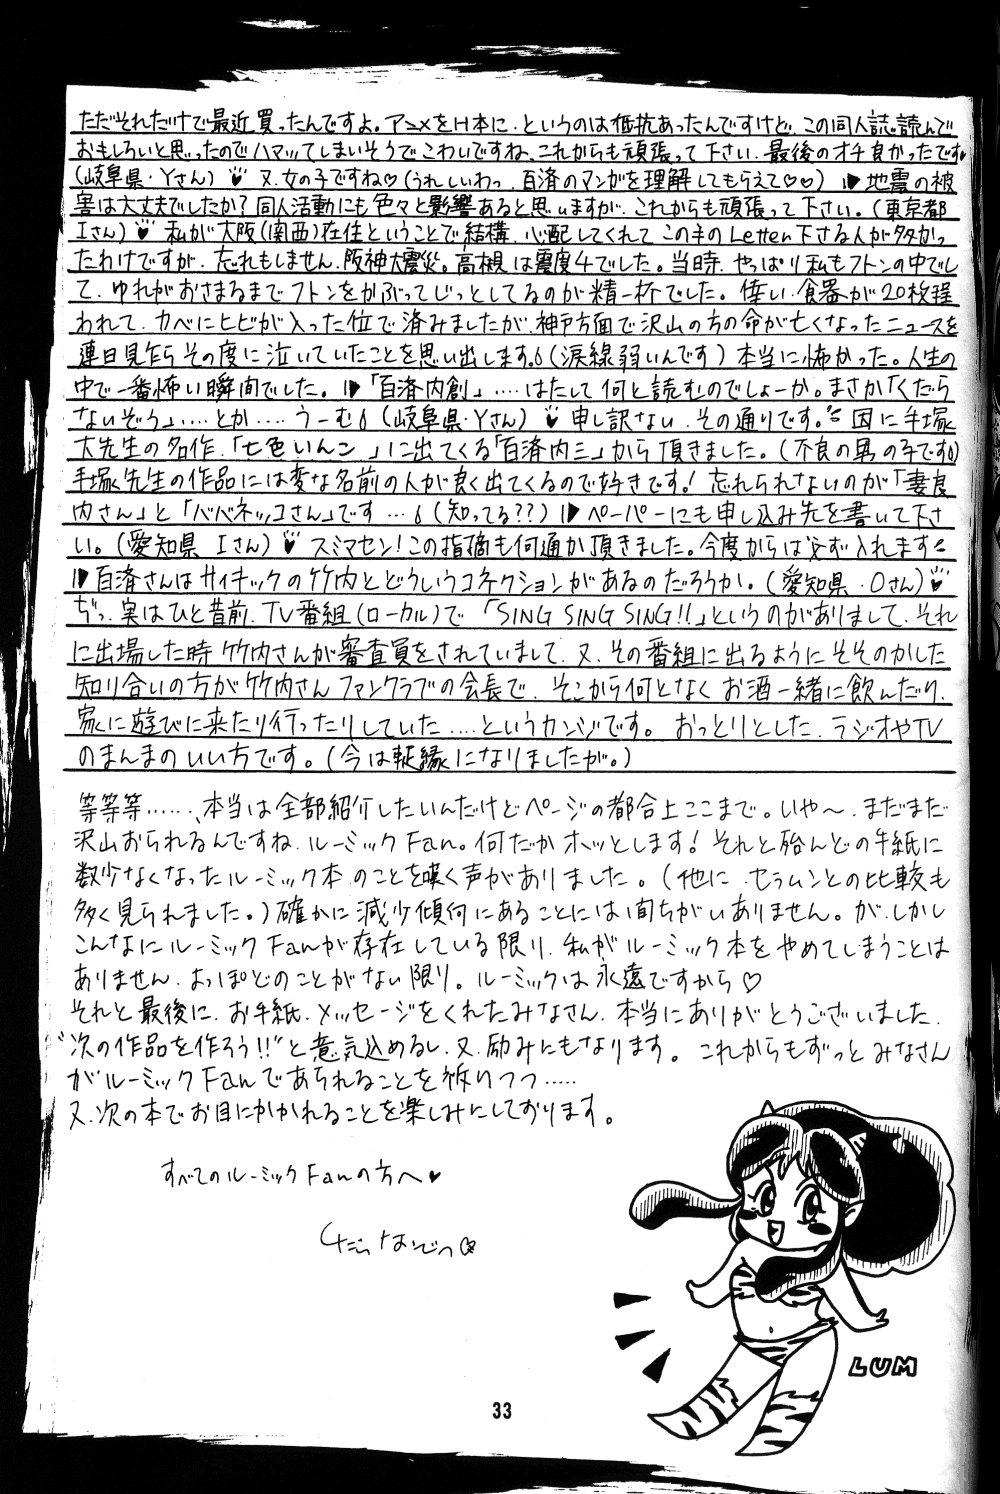 ただそれだけで最近買ったんですよ。アニメをH本に、というのは抵抗あったんですけど、この同人誌読んで
おもしろいと思ったのでハマッてしまいそうでこわいですね、これからも頑張って下さい、最後のオチ良かったです♥
(岐阜県・Yさん) 又、女の子ですね♡(うれしいわっ、百済のマンガを理解してもらえて♡♡) 地震の被
害は大丈夫でしたか?同人活動にも色々と影響あると思いますが、これからも頑張って下さい。(東京都
Iさん) 私が大阪(関西)在住ということで結構、心配してくれてこの手のLetter下さる人が多かっ
たわけですが、忘れもしません、阪神大震災。高槻は震度4でした。当時、やっぱり私もフトンの中でし
て、ゆれがおさまるまでフトンをかぶってじっとしてるのが精一杯でした。幸い、食器が20枚程
われて、カベにヒビが入った位で済みましたが、神戸方面で沢山の方の命が亡くなったニュースを
連日見ながらその度に泣いていたことを思い出します。(涙線弱いんです)本当に怖かった。人生の
中で一番怖い瞬間でした。「百済内創」‥‥はたして何と読むのでしょーか。まさか「くだら
ないぞう」‥‥とか‥‥うーむ(岐阜県・Yさん) 申し訳ない、その通りです。因に手塚
大先生の名作、「七色いんこ」に出てくる「百済内三」から頂きました。(不良の男の子です)
手塚先生の作品には変な名前の人が良く出てくるので好きです!忘れられないのが「妻良
内さん」と「ババネッコさん」です…(知ってる??) ペーパーにも申し込み先を書いて下さ
い。(愛知県 Iさん) スミマセン!この指摘も何通か頂きました。今度からは必ず入れます
百済さんはサイキックの竹内とどういうコネクションがあるのだろうか。(愛知県・Oさん)
ぢっ、実はひと昔前、TV番組(ローカル)で「SING SING SING!!」というのがありまして、それ
に出場した時竹内さんが審査員をされていまして、又、その番組に出るようにそそのかした
知り合いの方が竹内さんファンクラブの会長で、そこから何となくお酒一緒に飲んだり、
家に遊びに来たり行ったりしていた‥‥というカンジです。おっとりとした、ラジオやTV
のまんまのいい方です。(今は疎縁になりましたが。)
等等等‥‥‥、本当は全部紹介したいんだけどページの都合上ここまで。いや〜、まだまだ
沢山おられるんですね、ルーミックFan。何だかホッとします!それと殆んどの手紙に
数少なくなったルーミック本のことを嘆く声がありました。(他に、セラムンとの比較も
多く見られました。)確かに減少傾向にあることには間ちがいありません。が、しかし
こんなにルーミックFanが存在している限り、私がルーミック本をやめてしまうことは
ありません、よっぽどのことがない限り。ルーミックは永遠ですから♡
それと最後に、お手紙、メッセージをくれたみなさん、本当にありがとうございました、
"次の作品を作ろう!!"と意気込めるし、又、励みにもなります。これからもずっとみなさん
がルーミックFanであられることを祈りつつ‥‥‥
又、次の本でお目にかかれることを楽しみにしております。
すべてのルーミックFanの方へ♥
くだらないぞう
LUM
33